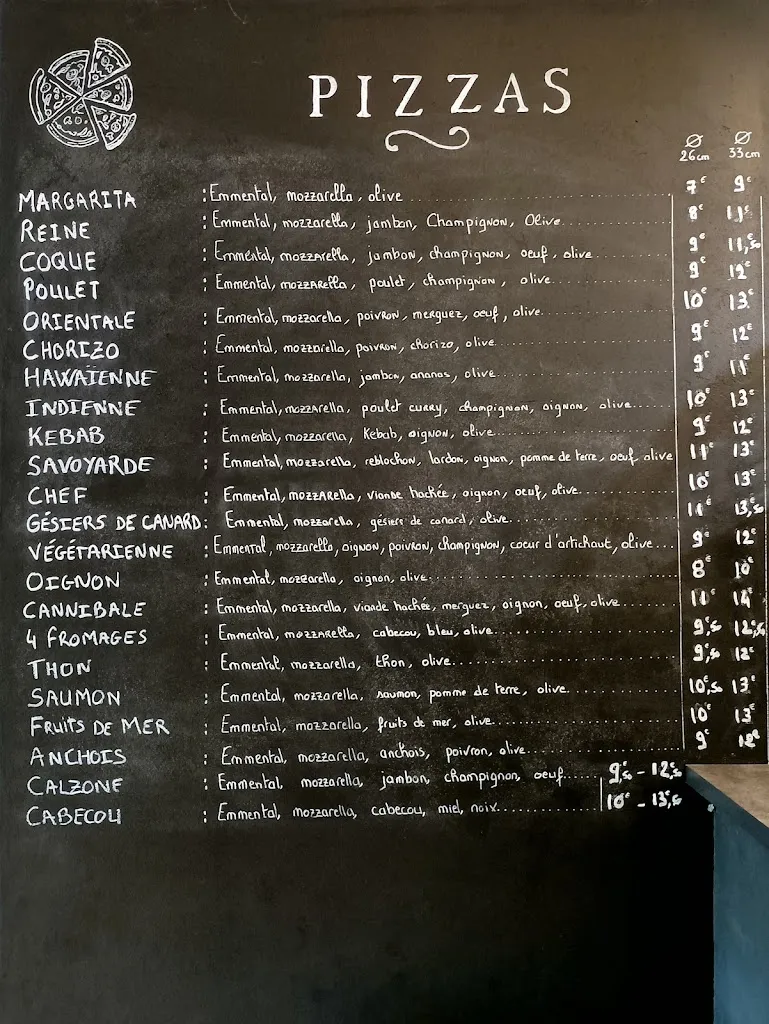 PIZZAS
Ø 26cm Ø 33cm
MARGARITA : Emmental, mozzarella, olive 7€ 9€
REINE : Emmental, mozzarella, jambon, Champignon, Olive 8€ 11€
COQUE : Emmental, mozzarella, jambon, champignon, oeuf, olive 9€ 11,€50
POULET : Emmental, mozzarella, poulet, champignon, olive 9€ 12€
ORIENTALE : Emmental, mozzarella, poivron, merguez, oeuf, olive 10€ 13€
CHORIZO : Emmental, mozzarella, poivron, chorizo, olive 9€ 12€
HAWAÏENNE : Emmental, mozzarella, jambon, ananas, olive 9€ 11€
INDIENNE : Emmental, mozzarella, poulet curry, champignon, oignon, olive 10€ 13€
KEBAB : Emmental, mozzarella, Kebab, oignon, olive 9€ 12€
SAVOYARDE : Emmental, mozzarella, reblochon, lardon, oignon, pomme de terre, oeuf, olive 11€ 13€
CHEF : Emmental, mozzarella, viande hachée, oignon, oeuf, olive 10€ 13€
GÉSIERS DE CANARD : Emmental, mozzarella, gésiers de canard, olive 11€ 13,€50
VÉGÉTARIENNE : Emmental, mozzarella, oignon, poivron, champignon, coeur d'artichaut, olive 9€ 12€
OIGNON : Emmental, mozzarella, oignon, olive 8€ 10€
CANNIBALE : Emmental, mozzarella, viande hachée, merguez, oignon, oeuf, olive 11€ 14€
4 FROMAGES : Emmental, mozzarella, cabecou, bleu, olive 9,€50 12,€50
THON : Emmental, mozzarella, thon, olive 9,€50 12€
SAUMON : Emmental, mozzarella, saumon, pomme de terre, olive 10,€50 13€
FRUITS DE MER : Emmental, mozzarella, fruits de mer, olive 10€ 13€
ANCHOIS : Emmental, mozzarella, anchois, poivron, olive 9€ 12€
CALZONE : Emmental, mozzarella, jambon, champignon, oeuf 9,€50 - 12,€50
CABECOU : Emmental, mozzarella, cabecou, miel, noix 10€ - 13,€50